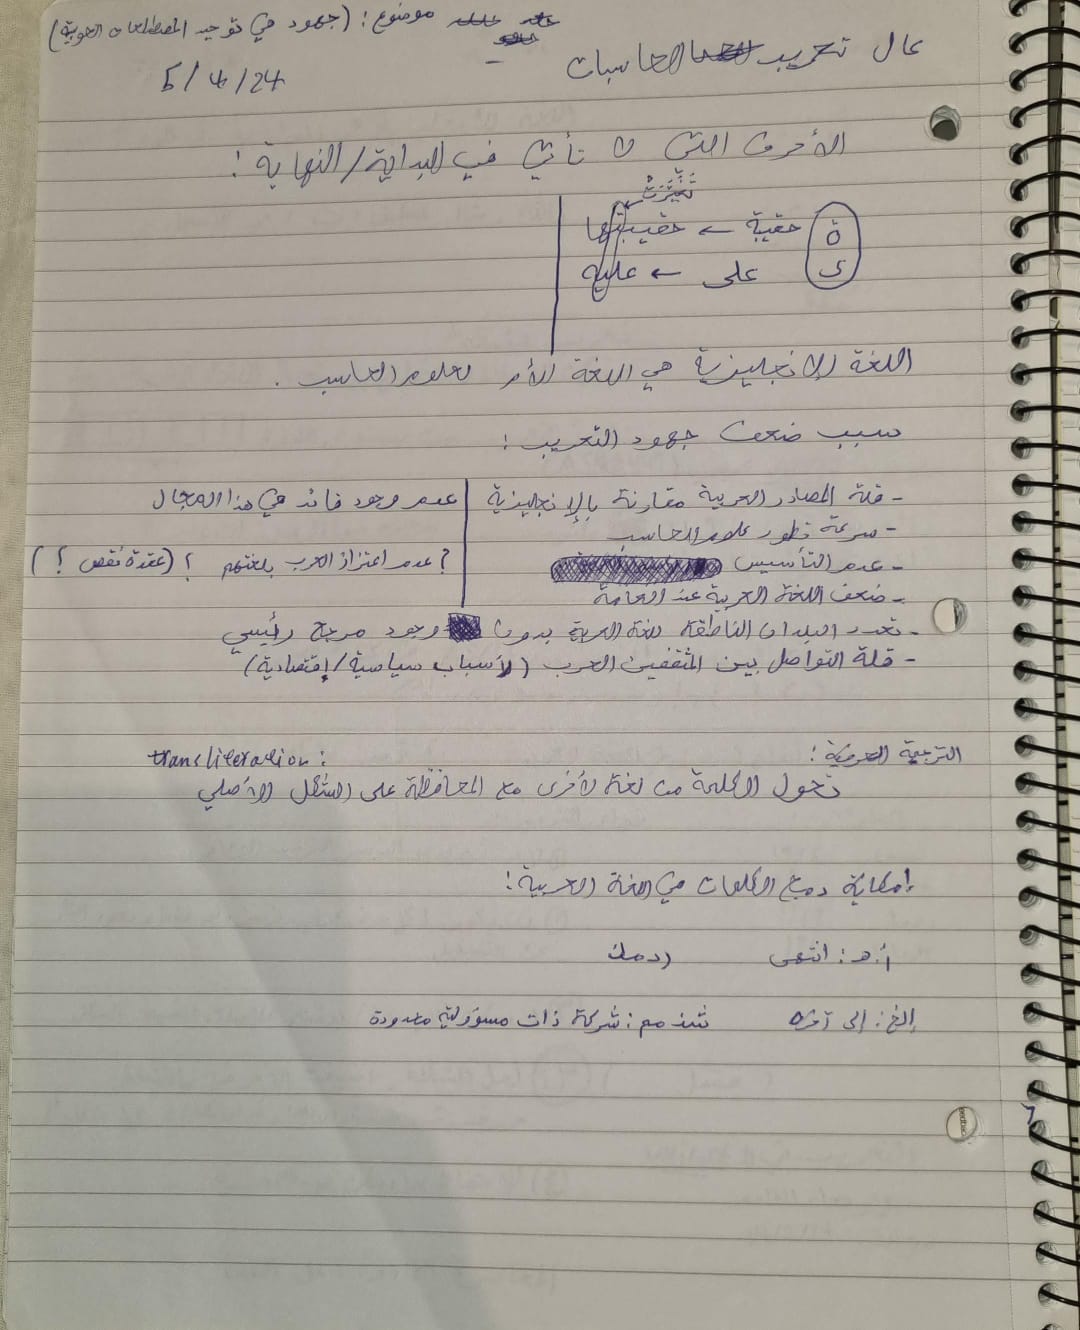 موضوع: (جهود في توحيد المصطلحات العربية)
عال تعريب الحاسبات
5/4/24
الأحرف التي لا تأتي في البداية/النهاية:
تغيّرت
ة حقيبة ← حقيبتها
ى على ← عليه
اللغة الإنجليزية هي اللغة الأم لعلوم الحاسب.
سبب ضعف جهود التعريب:
- قلة المصادر العربية مقارنة بالإنجليزية
عدم وجود قائد في هذا المجال
- سرعة تطور علوم الحاسب
- عدم التأسيس
? عدم اعتزاز العرب بلغتهم ؟ (عقدة نقص ؟)
- ضعف اللغة العربية عند العامة
- تعدد البلدان الناطقة للغة العربية بدون وجود مرجع رئيسي
- قلة التواصل بين المثقفين العرب (لأسباب سياسية/إقتصادية)
الترجمة الحرفية: transliteration:
تحول الكلمة من لغة لأخرى مع المحافظة على الشكل الأصلي
إمكاية دمج الكلمات في اللغة العربية:
أ.هـ: انتهى ردمك
إلخ: إلى آخره ش ذ م م: شركة ذات مسؤولية محدودة